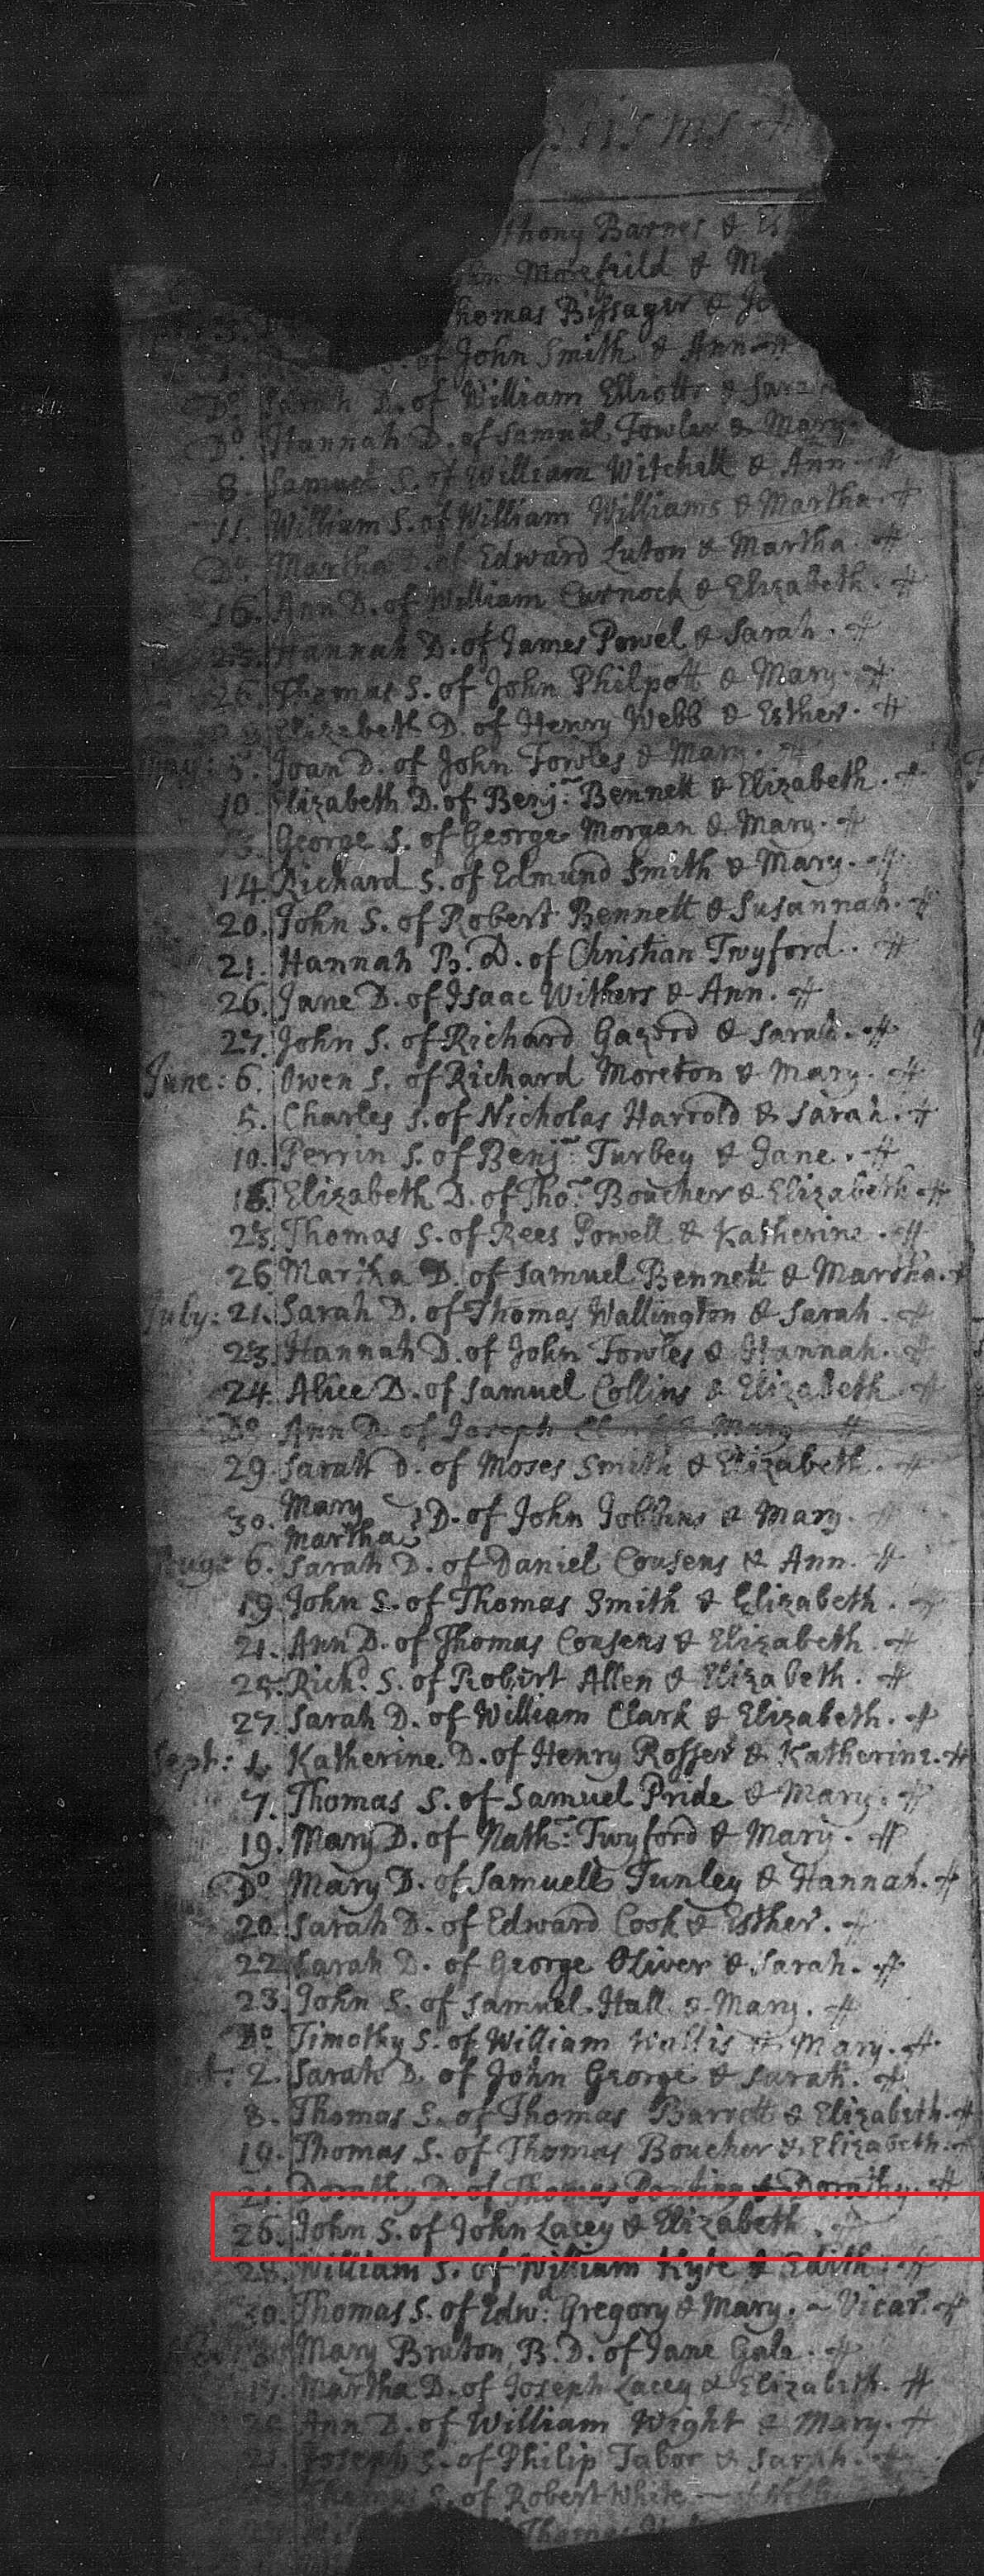 thony Barnes &
Morefeild &
homas Bissager &
of John Smith & Ann #
Do. Sarah D. of William Elliotts & Sara
Do. Hannah D. of Samuel Fowler & Mary
8. Samuel S. of William Witchell & Ann #
11. William S. of William Williams & Martha. #
Do. Martha D. of Edward Luton & Martha. #
16. Ann D. of William Curnock & Elizabeth. #
23. Hannah D. of James Powel & Sarah. #
Thomas S. of John Philpott & Mary. #
Elizabeth D. of Henry Webb & Esther. #
May: 5. Joan D. of John Fowles & Mary. #
10. Elizabeth D. of Benj: Bennett & Elizabeth. #
George S. of George Morgan & Mary. #
14. Richard S. of Edmund Smith & Mary. #
20. John S. of Robert Bennett & Susannah. #
21. Hannah B. D. of Christian Twyford. #
26. Jane D. of Isaac Withers & Ann. #
27. John S. of Richard Gazord & Sarah. #
June: 6. Owen S. of Richard Moreton & Mary. #
5. Charles S. of Nicholas Harrold & Sarah. #
10. Perrin S. of Benj: Turbey & Jane. #
Elizabeth D. of Tho: Boucher & Elizabeth #
23. Thomas S. of Rees Powell & Katherine. #
26 Martha D. of Samuel Bennett & Martha. #
July: 21. Sarah D. of Thomas Wallington & Sarah #
23. Hannah D. of John Fowles & Hannah. #
24. Alice D. of Samuel Collins & Elizabeth #
Do. Ann D. of Joseph & Mary #
29. Sarah D. of Moses Smith & Elizabeth. #
30. Mary Martha } D. of John Jobbins & Mary. #
Aug: 6. Sarah D. of Daniel Cousens & Ann. #
19. John S. of Thomas Smith & Elizabeth. #
21. Ann D. of Thomas Cousens & Elizabeth #
25. Richd. S. of Robert Allen & Elizabeth. #
27. Sarah D. of William Clark & Elizabeth. #
Sept: 1. Katherine D. of Henry Rosser & Katherine. #
7. Thomas S. of Samuel Pride & Mary. #
19. Mary D. of Nath: Twyford & Mary. #
Do. Mary D. of Samuell Tunley & Hannah. #
20. Sarah D. of Edward Cook & Esther. #
22. Sarah D. of George Oliver & Sarah. #
23. John S. of Samuel Hall & Mary. #
Do. Timothy S. of William Wallis & Mary. #
2. Sarah D. of John George & Sarah. #
8. Thomas S. of Thomas Barrett & Elizabeth. #
19. Thomas S. of Thomas Boucher & Elizabeth. #
21. Dorothy D. of Thomas Ponting & Dorothy. #
26. John S. of John Lacey & Elizabeth. #
28. William S. of William Hyle & Edith. #
30. Thomas S. of Edwd. Gregory & Mary. ~ Vicar. #
Mary Bruton B. D. of Jane Gale. #
Martha D. of Joseph Lacey & Elizabeth. #
Ann D. of William Wight & Mary. #
Joseph S. of Philip Tabor & Sarah. #
Thomas S. of Robert White
Thomas